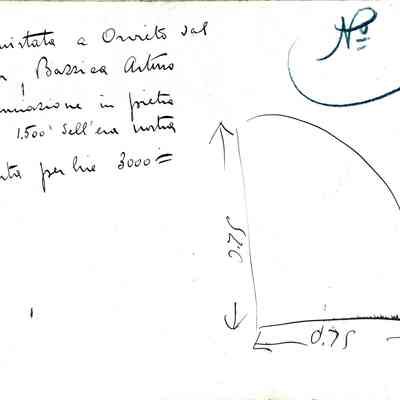 uistata a Orvieto dal
Bassica Arturo
nciazione in pietra
1.500 dell'era nostra
ta per lire 3000=
Nº
0.75